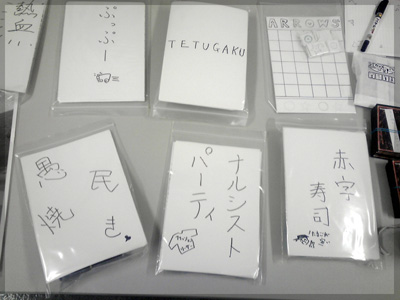 熱血
ぷぷー
TETUGAKU
ARROWS
愚民
焼き
ナルシスト
パーティ
赤字
寿司